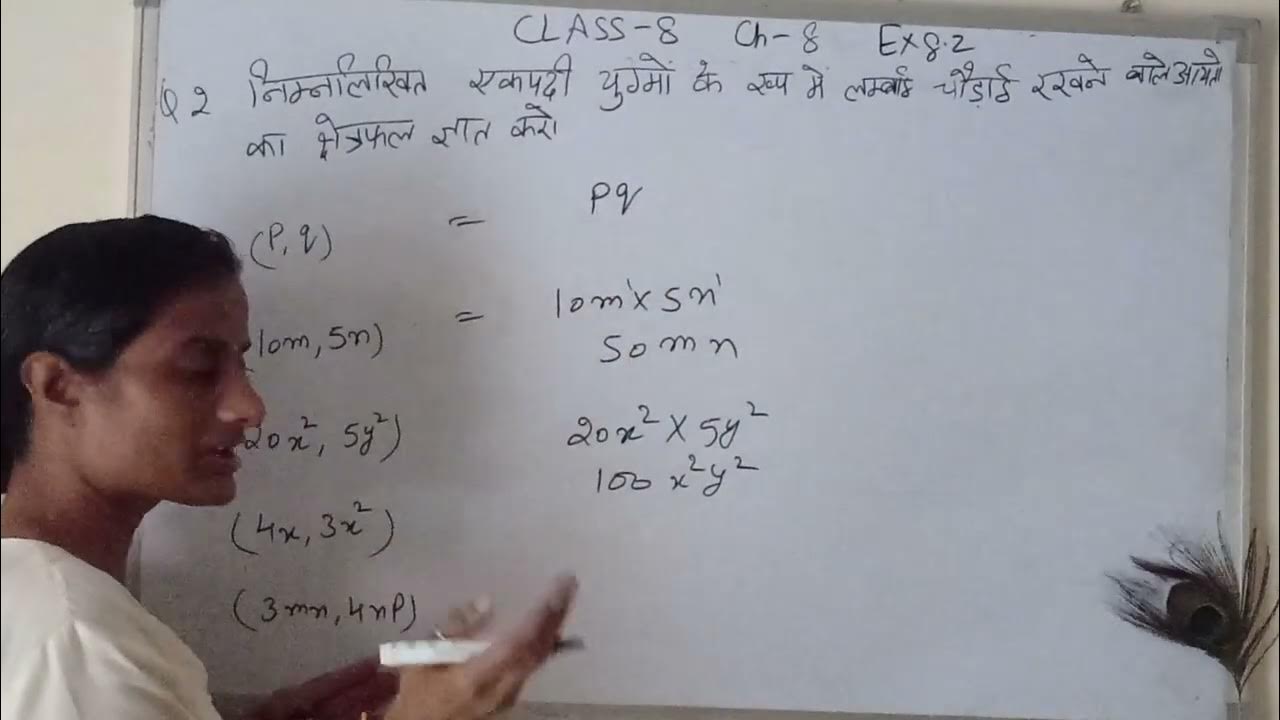 CLASS-8 Ch-8 Ex 8.2
Q 2 निम्नलिखित एकपदी युग्मों के रूप में लम्बाई चौड़ाई रखने वाले आयतो
का क्षेत्रफल ज्ञात करो
(P, q) = Pq
10m, 5n) = 10m¹ x 5n¹
50mn
20x², 5y²) 20x² x 5y²
100 x²y²
(4x, 3x²)
(3mn, 4np)